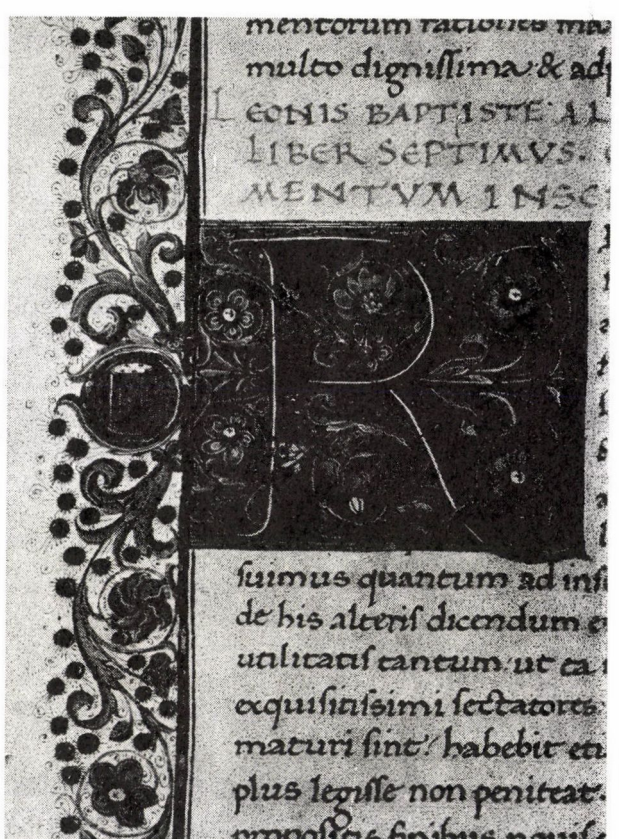 mentorum rationes
multo dignissima & ad
LEONIS BAPTISTE AL
LIBER SEPTIMVS.
MENTVM INSC
R
suimus quantum ad inst
de his alteris dicendum e
utilitatis tantum ut ea
exquisitissimi sectatores
maturi sint? habebit eti
plus legisse non peniteat.
propositis finibus